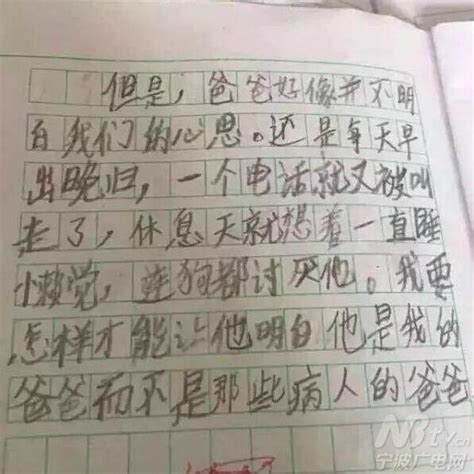 但是，爸爸好像并不明
白我们的心思。还是每天早
出晚归，一个电话就又被叫
走了，休息天就想着一直睡
懒觉，连狗都讨厌他。我要
怎样才能让他明白他是我的
爸爸而不是那些病人的爸爸
NBtv.cn
宁波广电网